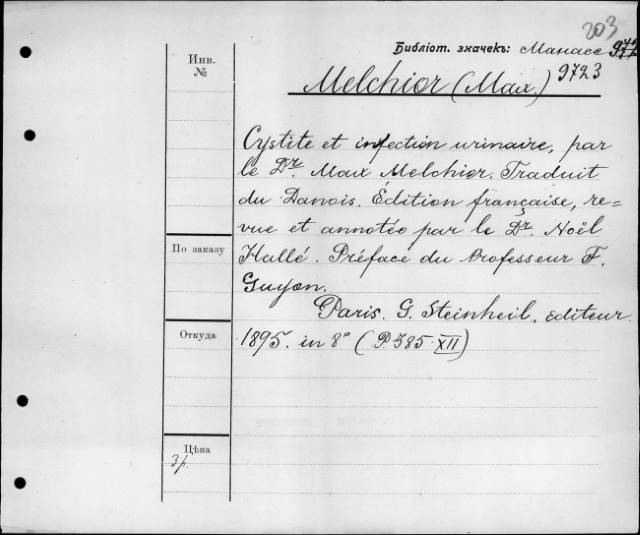 203
Библіот. значекъ: Манасе 972
Инв. №
Melchior (Max.) 9723
Cystite et infection urinaire, par
le Dr. Max Melchior. Traduit
du Danois. Édition française, re-
vue et annotée par le Dr. Noël
По заказу
Hallé. Préface du Professeur F.
Guyon.
Paris. G. Steinheil, editeur
Откуда
1895. in 8° (P 385 XII)
Цѣна
3 р.